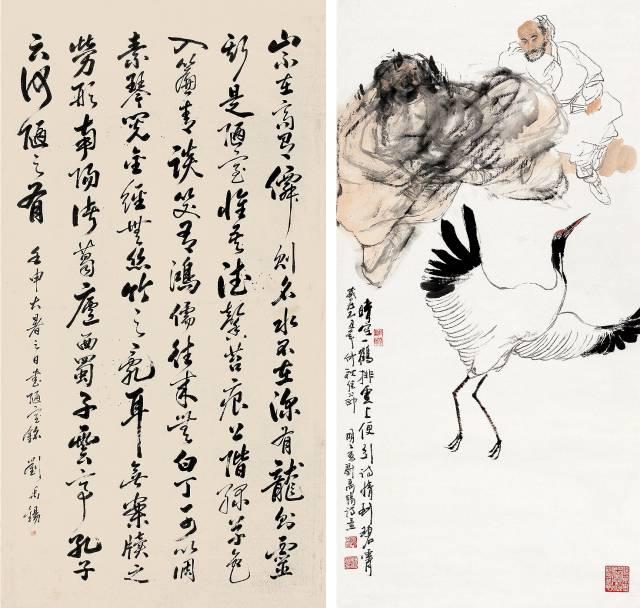 山不在高有僊則名水不在深有龍則靈
斯是陋室惟吾德馨苔痕上階綠草色
入簾青談笑有鴻儒往來無白丁可以調
素琴閱金經無絲竹之亂耳無案牘之
勞形南陽諸葛廬西蜀子雲亭孔子
云何陋之有 壬申大暑之日書陋室銘 劉錫
晴空一鶴排雲上便引詩情到碧霄
年仲秋 劉禹錫詩意